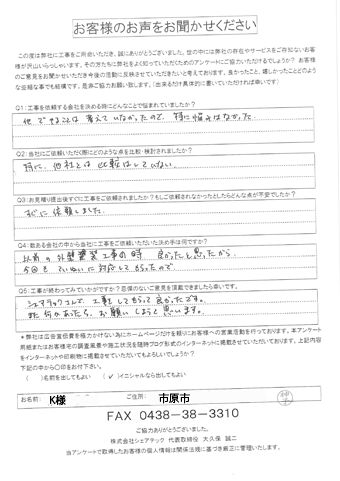 お客様のお声をお聞かせください
この度は弊社に工事をご用命いただき、誠にありがとうございました。世の中には弊社の存在やサービスをご存知ないお客
様が沢山いらっしゃいます。その方たちに弊社をよく知っていただくためのアンケートにご協力いただけるでしょうか？ お客様
のご意見をお聞かせいただき今後の活動に反映させていただきたいと考えております。良かったこと、嬉しかったことどのよう
な些細な事でも結構です。是非ご協力お願い致します。（出来るだけ具体的に書いていただければ幸いです）
Q1：工事を依頼する会社を決める時にどんなことで悩まれていましたか？
他でやることは考えていなかったので、特に悩みはなかった
Q2：当社にご依頼いただく際にどのような点を比較・検討されましたか？
特に、他社とは比較はしていない。
Q3：お見積り提出後すぐに工事をご依頼されましたか？もしご依頼されなかったとしたらどんな点が不安でしたか？
すぐに依頼しました。
Q4：数ある会社の中から当社に工事をご依頼いただいた決め手は何ですか？
以前の外壁塗装工事の時 良かったと思ったから
今回もていねいに対応してもらったので
Q5：工事が終わってみていかがですか？忌憚のないご意見を頂戴できましたら幸いです。
シェアテックさんで、工事をしてもらって良かったです。
また何かあったら、お願いしようと思います。
＊弊社は広告宣伝費を極力かけない為にホームページだけを頼りにお客様への営業活動を行っております。本アンケート
用紙またはお客様宅の調査風景や施工状況を随時ブログ形式のインターネットに掲載させていただいております。上記内容
をインターネットや印刷物に掲載させていただいてもよろしいでしょうか？
下記の中から○印をお付下さい。
（ ）名前を出してもよい （✓）イニシャルなら出してもよい
お名前： K様 市原市
FAX 0438-38-3310
ご協力ありがとうございました。
株式会社シェアテック 代表取締役 大久保 誠二
当アンケートで取得したお客様の個人情報は関係法規に基づき厳正に管理いたします。